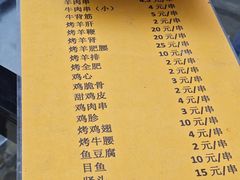 羊肉串 4.5元/串
牛肉串（小） 2元/串
牛背筋 5元/串
烤羊肝 2元/串
烤羊鞭 20元/串
烤羊肾 20元/串
烤羊肥腰 25元/串
烤羊排 10元/串
烤全肥 2元/串
鸡心 3元/串
鸡脆骨 2元/串
甜鸡皮 2元/串
鸡肉串 3元/串
鸡胗 10元/串
烤鸡翅 3元/串
烤牛腰 2元/串
鱼豆腐 10元/串
目鱼 15元/串